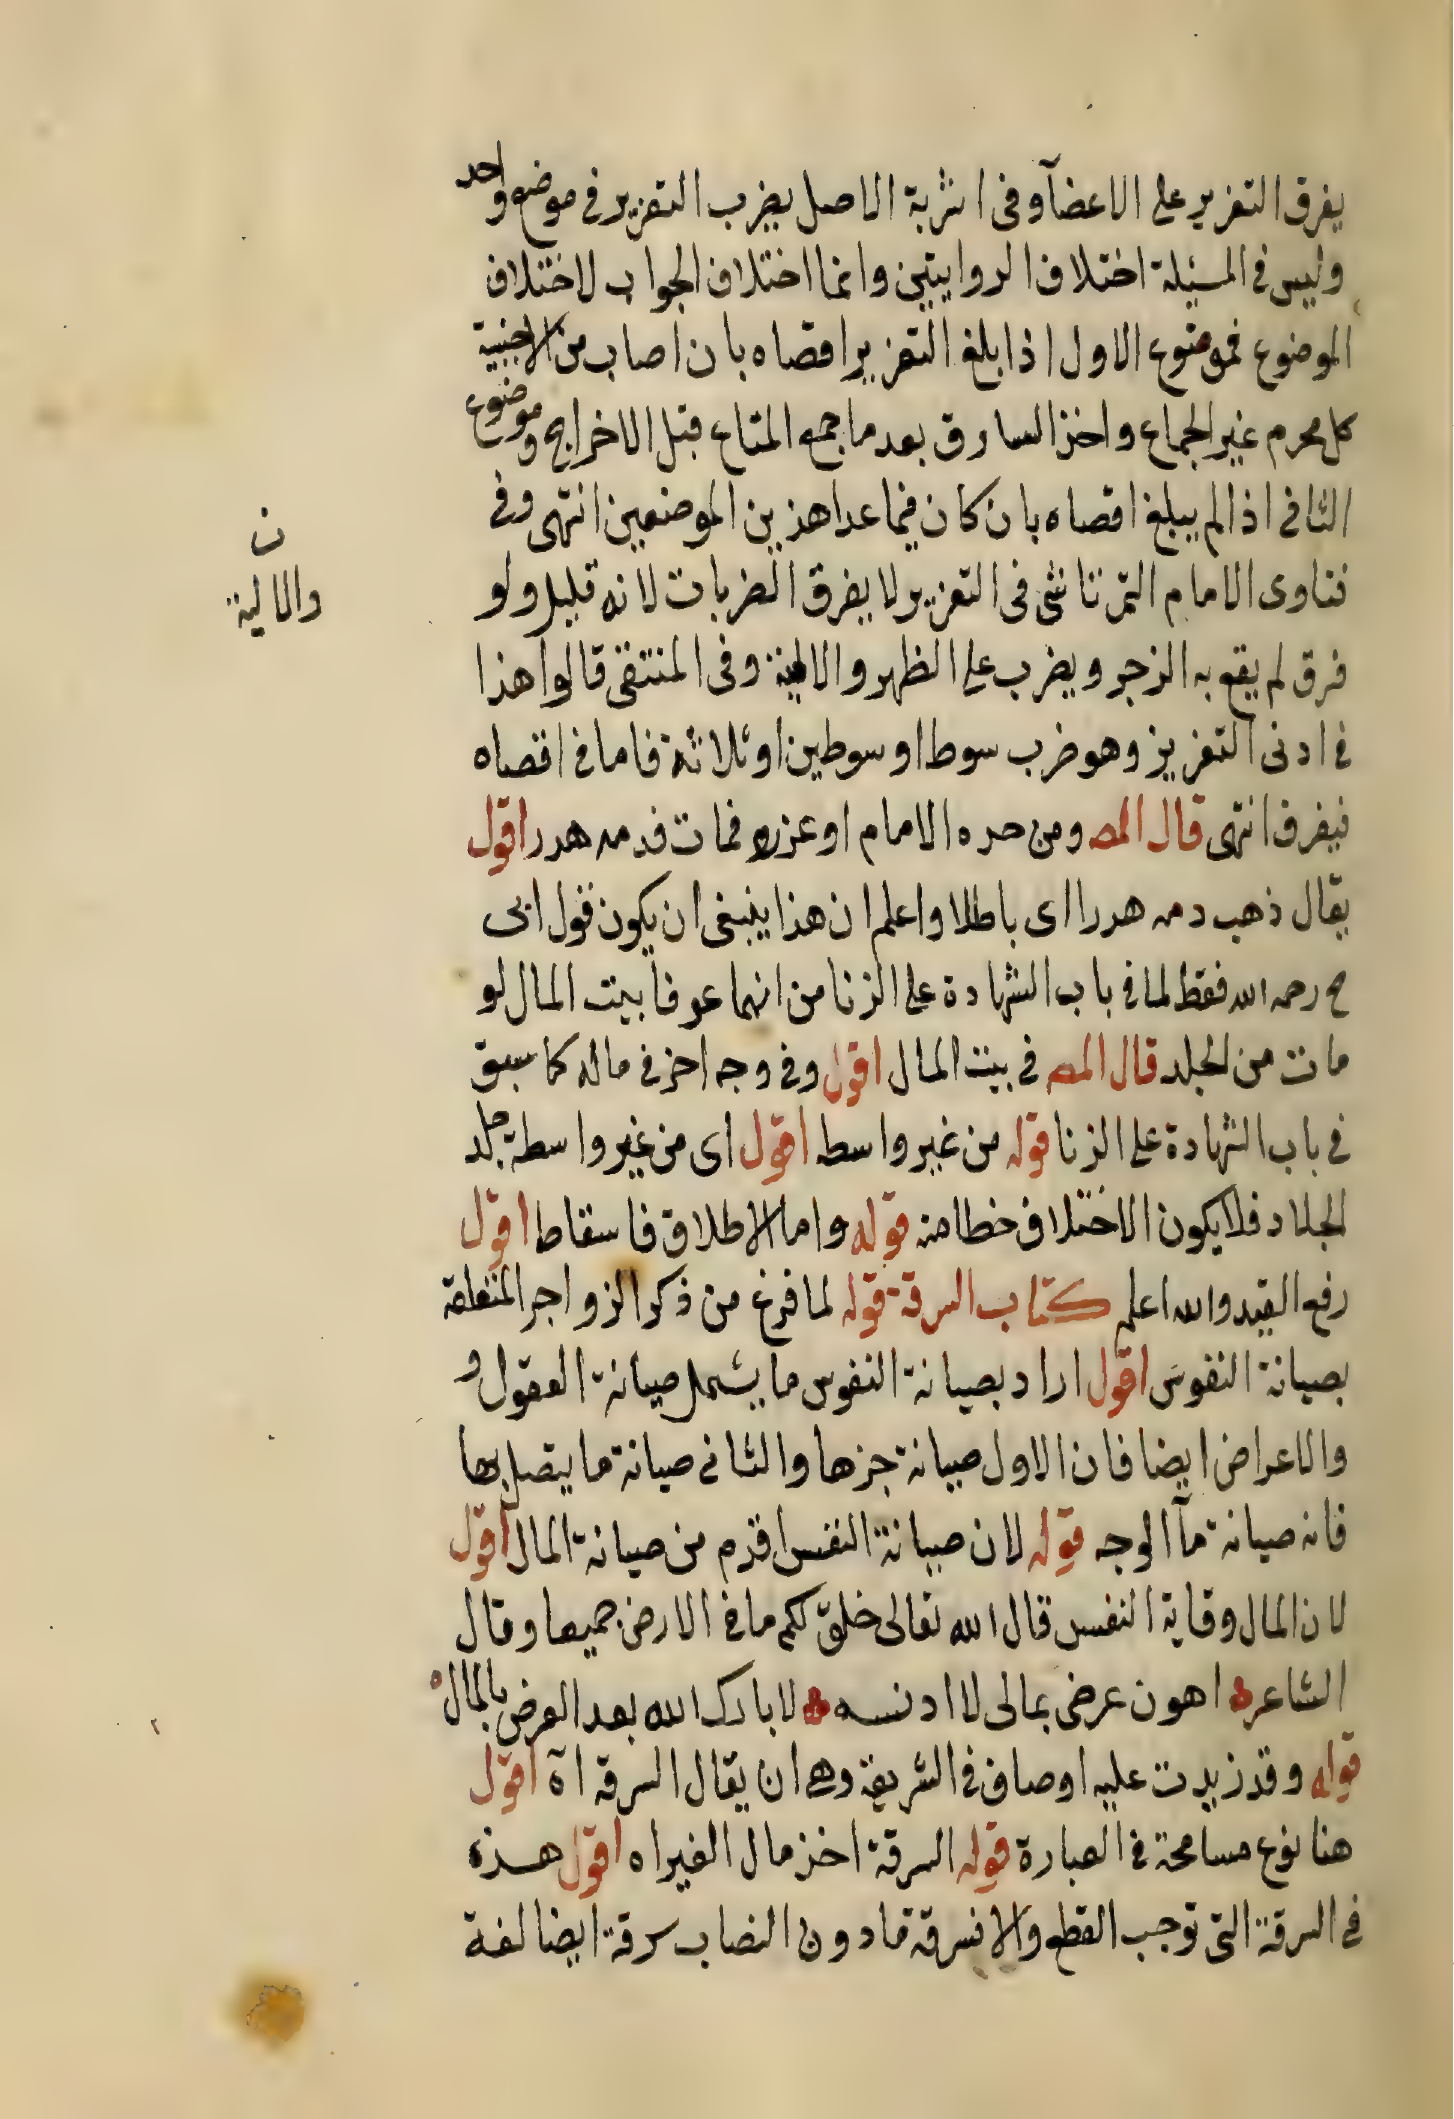 يفرق التعزير على الاعضآ وفى اشربة الاصل يضرب التعزير فى موضع واحد
وليس فى المسئلة اختلاف الروايتين وانما اختلاف الجواب لاختلاف
الموضوع فموضوع الاول اذا بلغ التعزير اقصاه بان اصاب من الاجنبية
كل محرم غير الجماع واخذ السارق بعد ما جمع المتاع قبل الاخراج وموضوع
الثانى اذا لم يبلغ اقصاه بان كان فيما عدا هذين الموضعين انتهى وفى
فتاوى الامام التمرتاشى فى التعزير لا يفرق الضربات لانه قليل ولو
فرق لم يقع به الزجر ويضرب على الظهر والالية وفى المنتقى قالوا هذا
فى ادنى التعزيز وهو ضرب سوط او سوطين او ثلاثة فاما فى اقصاه
فيفرق انتهى قال المصـ ومن حده الامام او عزره فمات فدمه هدر اقول
يقال ذهب دمه هدرا اى باطلا واعلم ان هذا ينبغى ان يكون قول ابى
ح رحمه الله فقط لما فى باب الشهادة على الزنا من انهما عوفا بيت المال لو
مات من الجلد قال المصـ فى بيت المال اقول وفى وجه اخر فى ماله كما سبق
فى باب الشهادة على الزنا قوله من غير واسط اقول اى من غير واسطة جلد
الجلاد فلا يكون الاختلاف خطا منه قوله واما الاطلاق فاسقاط اقول
رفع القيد والله اعلم كتاب السرقة قوله لما فرغ من ذكر الزواجر المتعلقة
بصيانة النفوس اقول اراد بصيانة النفوس ما يشمل صيانة العقول و
والاعراض ايضا فان الاول صيانة جزها والثانى صيانة ما يتصل بها
فانه صيانة مآ الوجه قوله لان صيانة النفس اقدم من صيانة المال اقول
لان المال وقاية النفس قال الله تعالى خلق لكم ما فى الارض جميعا وقال
الشاعر اهون عرضى بمالى لا ادنسه لا بارك الله بعد العرض بالمال
قوله وقد زيدت عليه اوصاف فى الشريعة وهى ان يقال السرقة آه اقول
هنا نوع مسامحة فى العبارة قوله السرقة اخذ مال الغير اه اقول هذه
فى السرقة التى توجب القطع والا فسرقة مادون النصاب سرقة ايضا لغة
ن
والالية